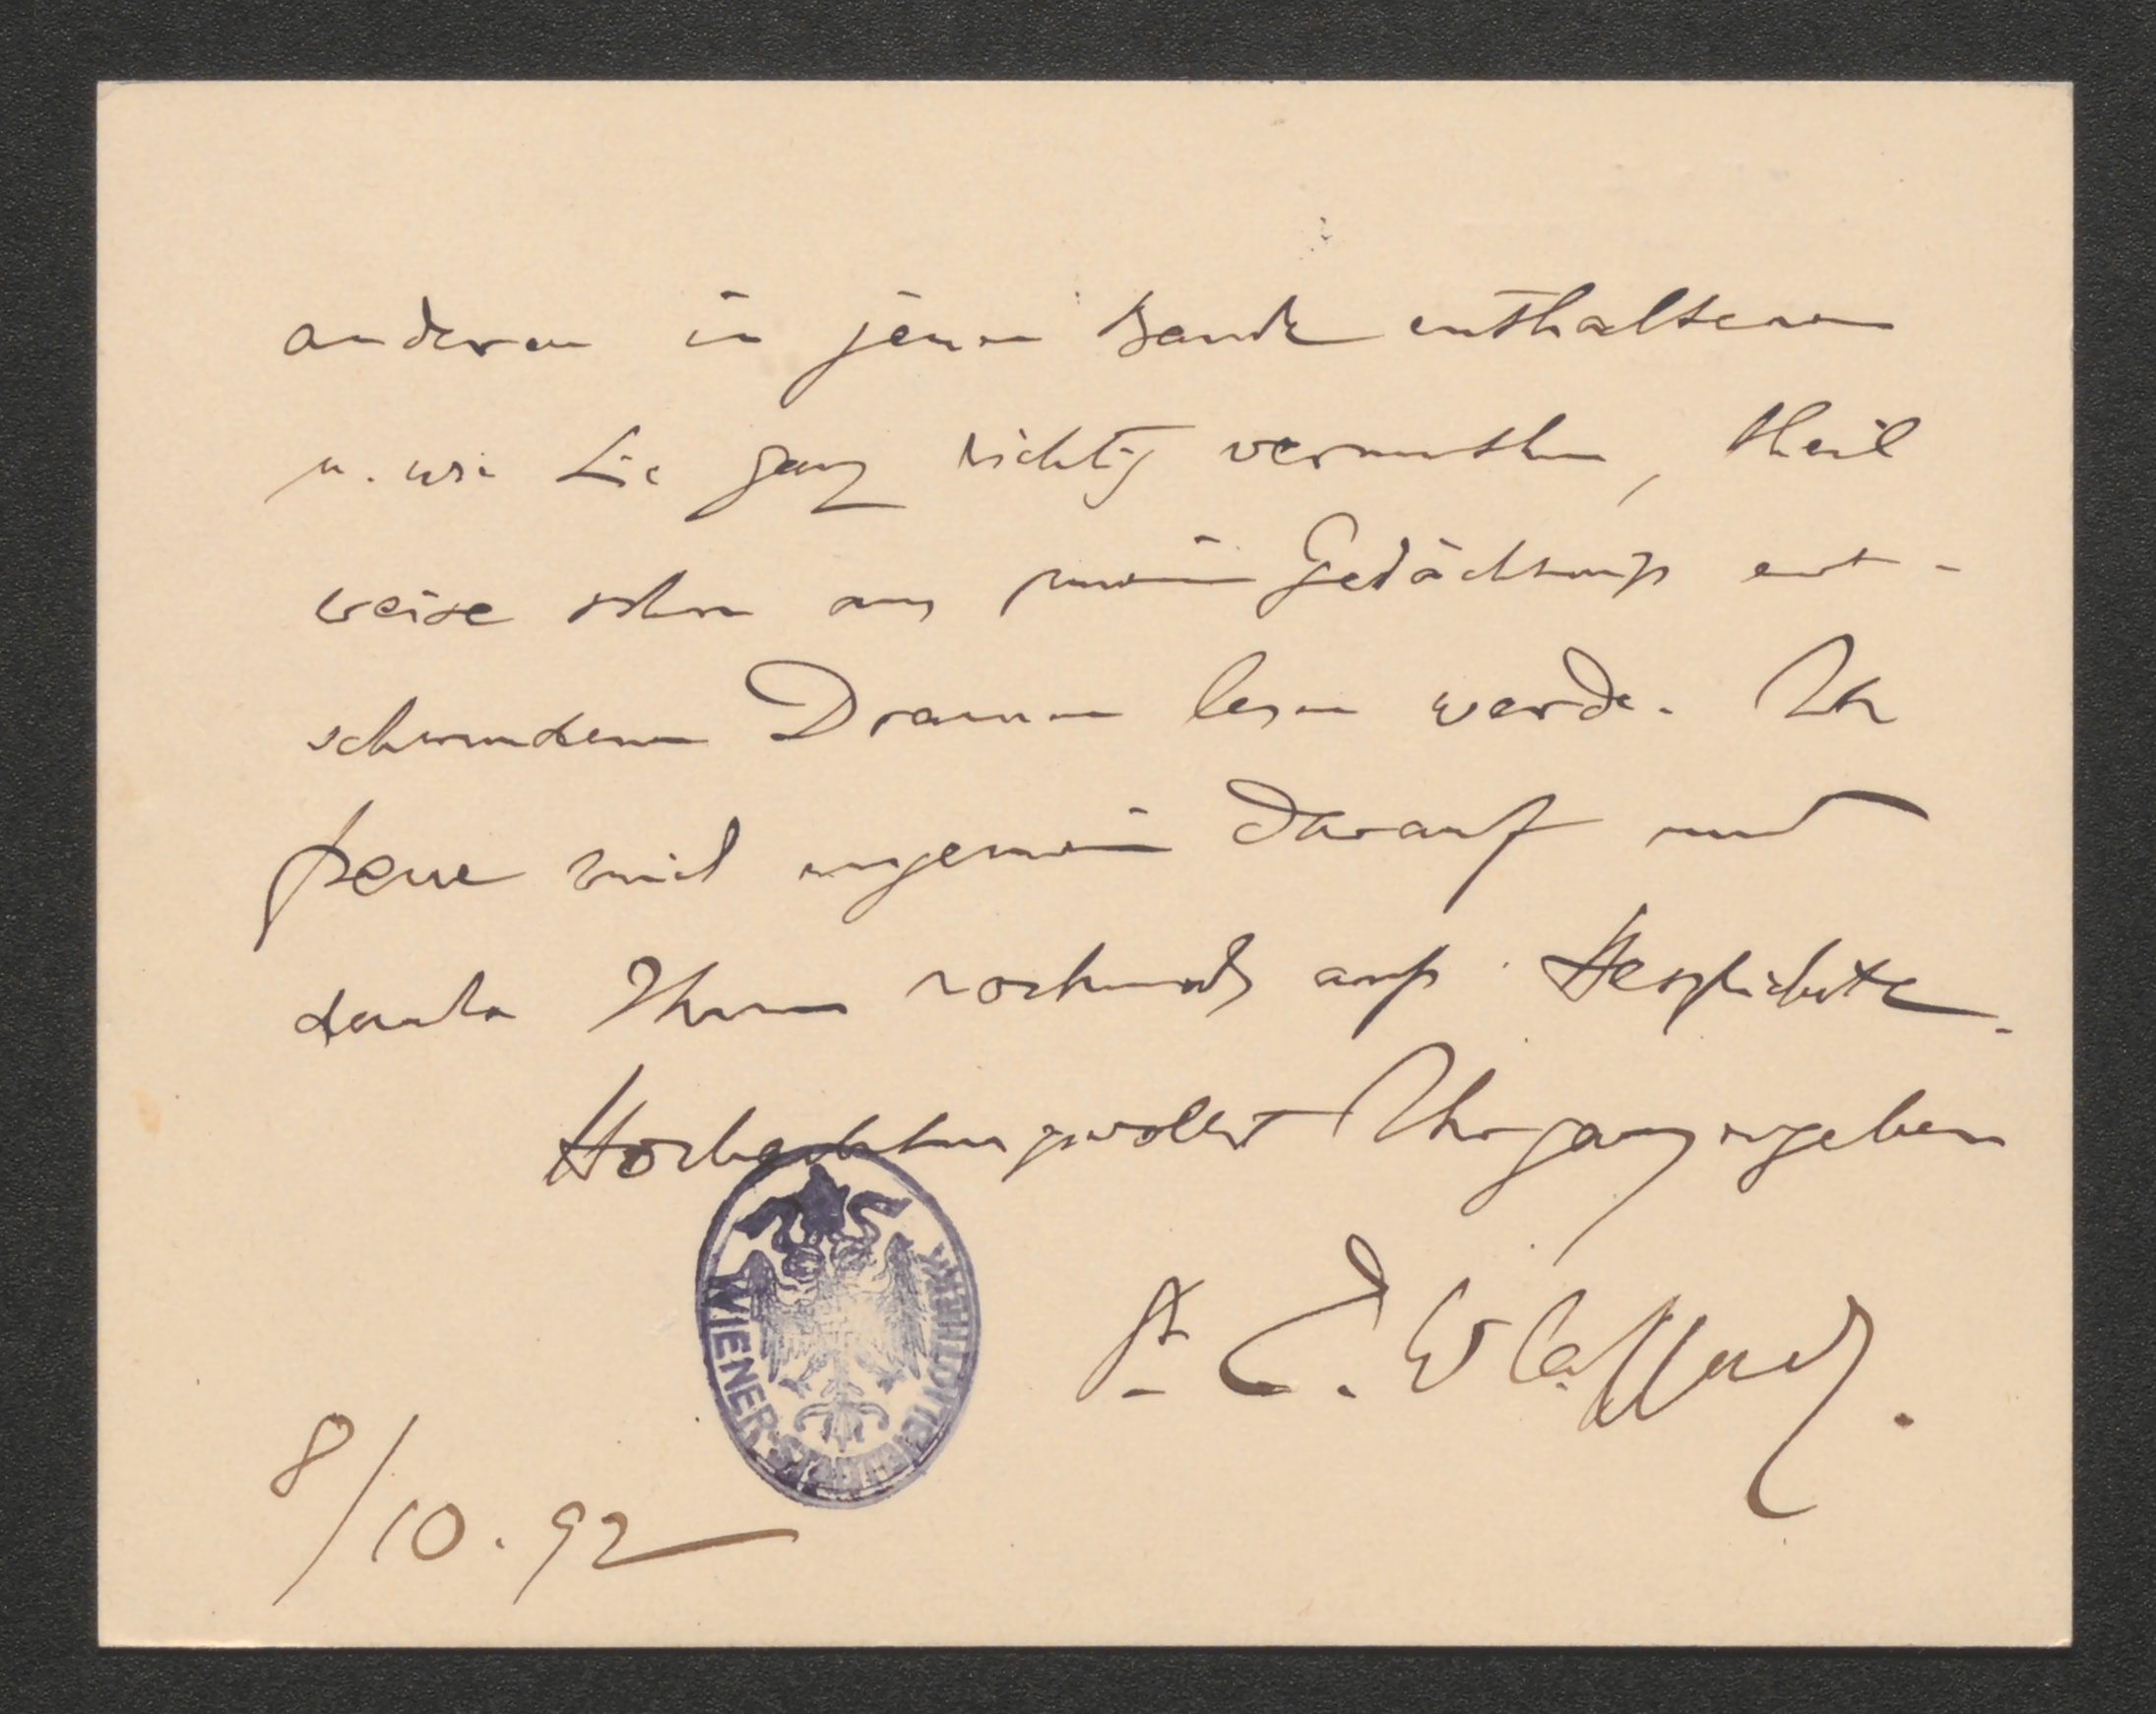 anderen in jenem Bande enthaltenen
u. wie Sie ganz richtig vermuthen, theil
weise schon aus meinem Gedächtniß ent-
schwundenen Dramen lesen werde. Ich
freue mich ungemein darauf und
danke Ihnen nochmals aufs Herzlichste.
Hochachtungsvollst Ihr ganz ergebener
Dr. E. Wlassack.
8/10.92
WIENER-STADTBIBLIOTHEK